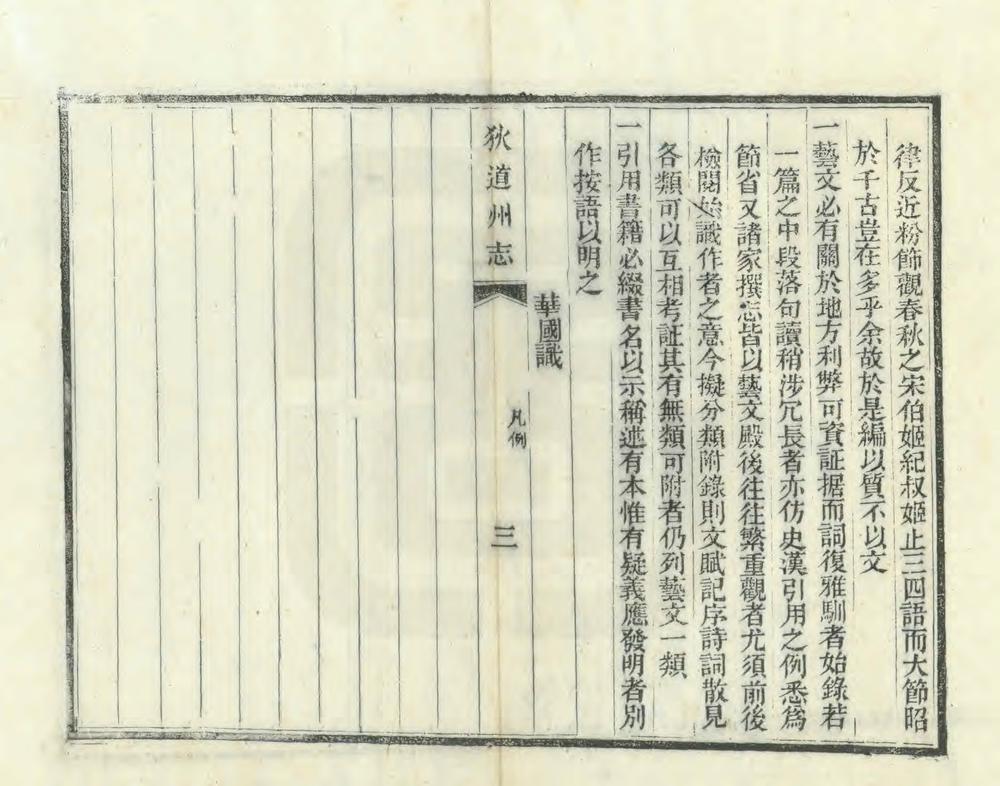 律反近粉節觀春秋之宋伯姬紀叔姬止三四語而大節昭
於千古豈在多乎余故於是編以質不以文
一藝文必有關於地方利弊可資証据而詞復雅馴者始錄若
一篇之中段落句讀稍涉冗長者亦仿史漢引用之例悉爲
節省又諸家撰志皆以藝文殿後往往繁重觀者尤須前後
檢閱始識作者之意今擬分類附錄則文賦記序詩詞散見
各類可以互相考証其有無類可附者仍列藝文一類
一引用書籍必綴書名以示稱述有本惟有疑義應發明者別
作按語以明之
華國識
狄道州志
凡例
三